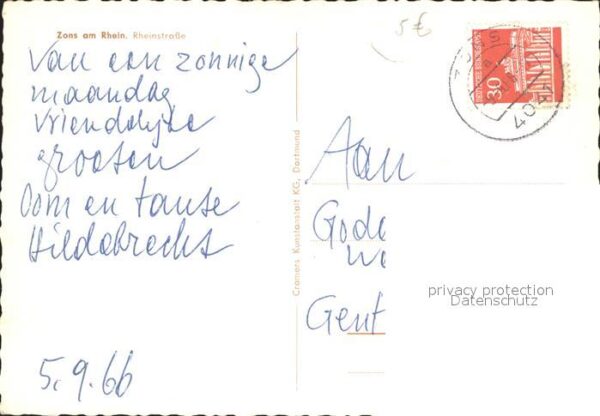 Zons am Rhein. Rheinstraße
5 €
Van een zonnige
maandag
vriendelijke
groeten
Oom en tante
Hildebrecht
5.9.66
Cramers Kunstanstalt KG, Dortmund
30
4041
Aan
Gode
Gent
privacy protection
Datenschutz